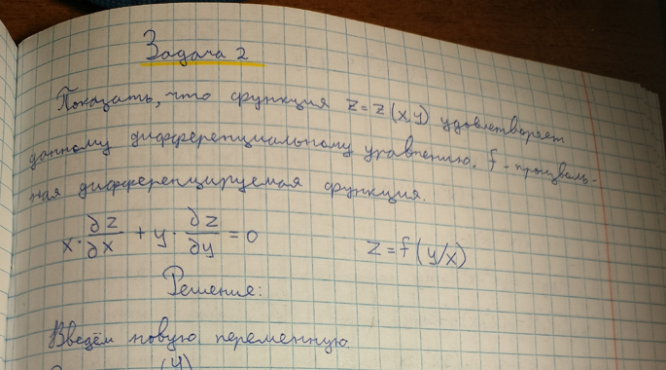 Задача 2
Показать, что функция z = z(x,y) удовлетворяет
данному дифференциальному уравнению. f - произволь-
ная дифференцируемая функция.
x · ∂z/∂x + y · ∂z/∂y = 0 z = f(y/x)
Решение:
Введём новую переменную.